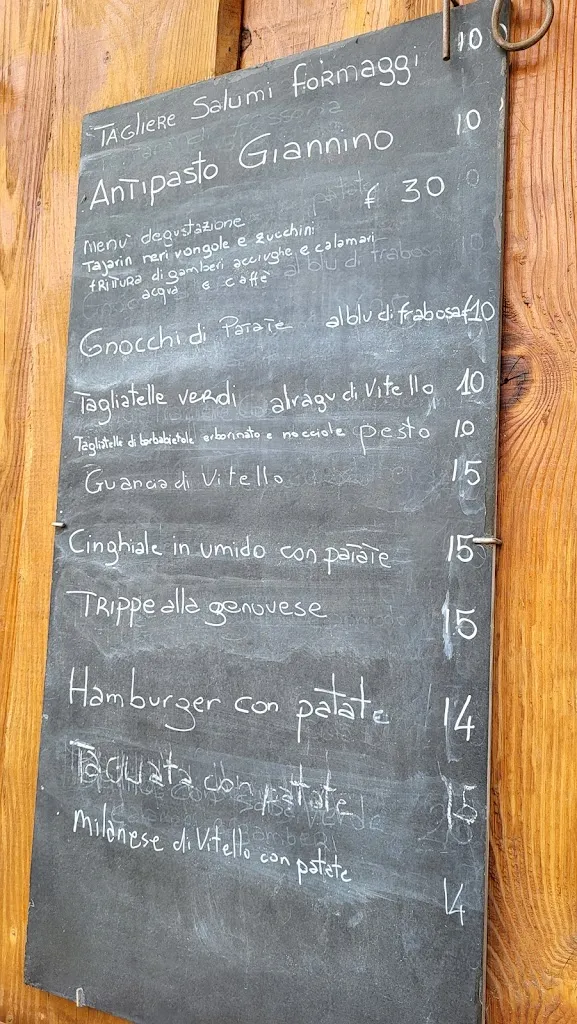 TAGLIERE SALUMI FORMAGGI 10
ANTIPASTO GIANNINO 10
Menù degustazione € 30
Tajarin neri vongole e zucchini
FRITTURA di gamberi acciughe e calamari
acqua e caffè
Gnocchi di PATATE al blu di frabosa €10
Tagliatelle verdi al ragu di Vitello 10
Tagliatelle di barbabietole erborinato e nocciole pesto 10
Guancia di Vitello 15
Cinghiale in umido con patate 15
TRIPPE alla genovese 15
Hamburger con patate 14
TAGLIATA con patate 15
Milanese di Vitello con patate
14